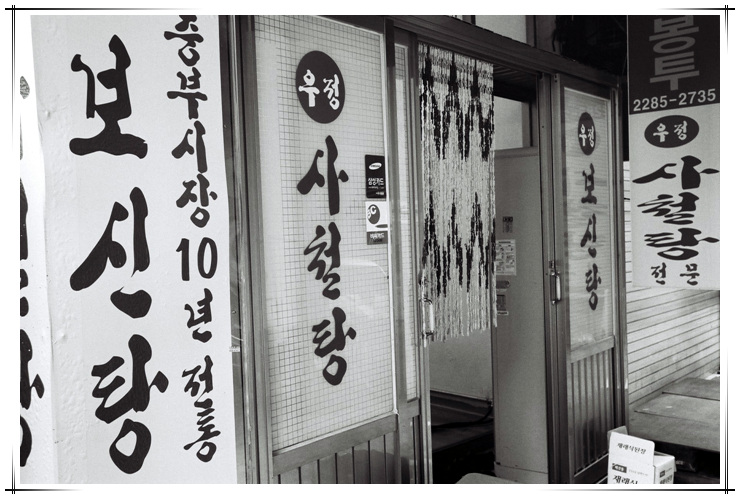 보신탕
중부시장 10년 전통
우정
사철탕
삼성카드
우정
보신탕
봉투
2285-2735
우정
사철탕
전문
재래식된장
재래식